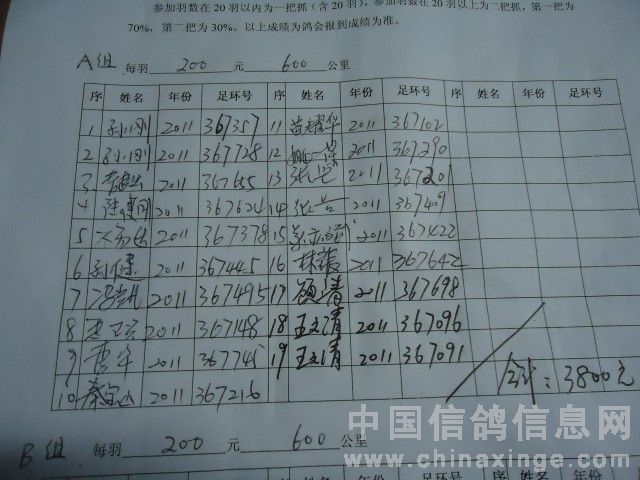 参加羽数在20羽以内为一把抓(含20羽),参加羽数在20羽以上为二把抓,第一把为
70%,第二把为30%。以上成绩为鸽会报到成绩为准。
A组 每羽 200 元 600 公里
序 姓名 年份 足环号 序 姓名 年份 足环号 序 姓名 年份 足环号
1 孙小刚 2011 367357 11 苗耀华 2011 367102
2 孙小刚 2011 367728 12 2011 367290
3 2011 367655 13 2011 367201
4 2011 367624 14 2011 367409
5 2011 367378 15 2011 367422
6 孙健 2011 367445 16 林 2011 367642
7 2011 367495 17 2011 367698
8 2011 367148 18 王文清 2011 367096
9 曹军 2011 367745 19 王文清 2011 367091
10 秦宝山 2011 367216
合计:3800元
B组 每羽 200 元 600 公里
中国信鸽信息网
www.chinaxinge.com